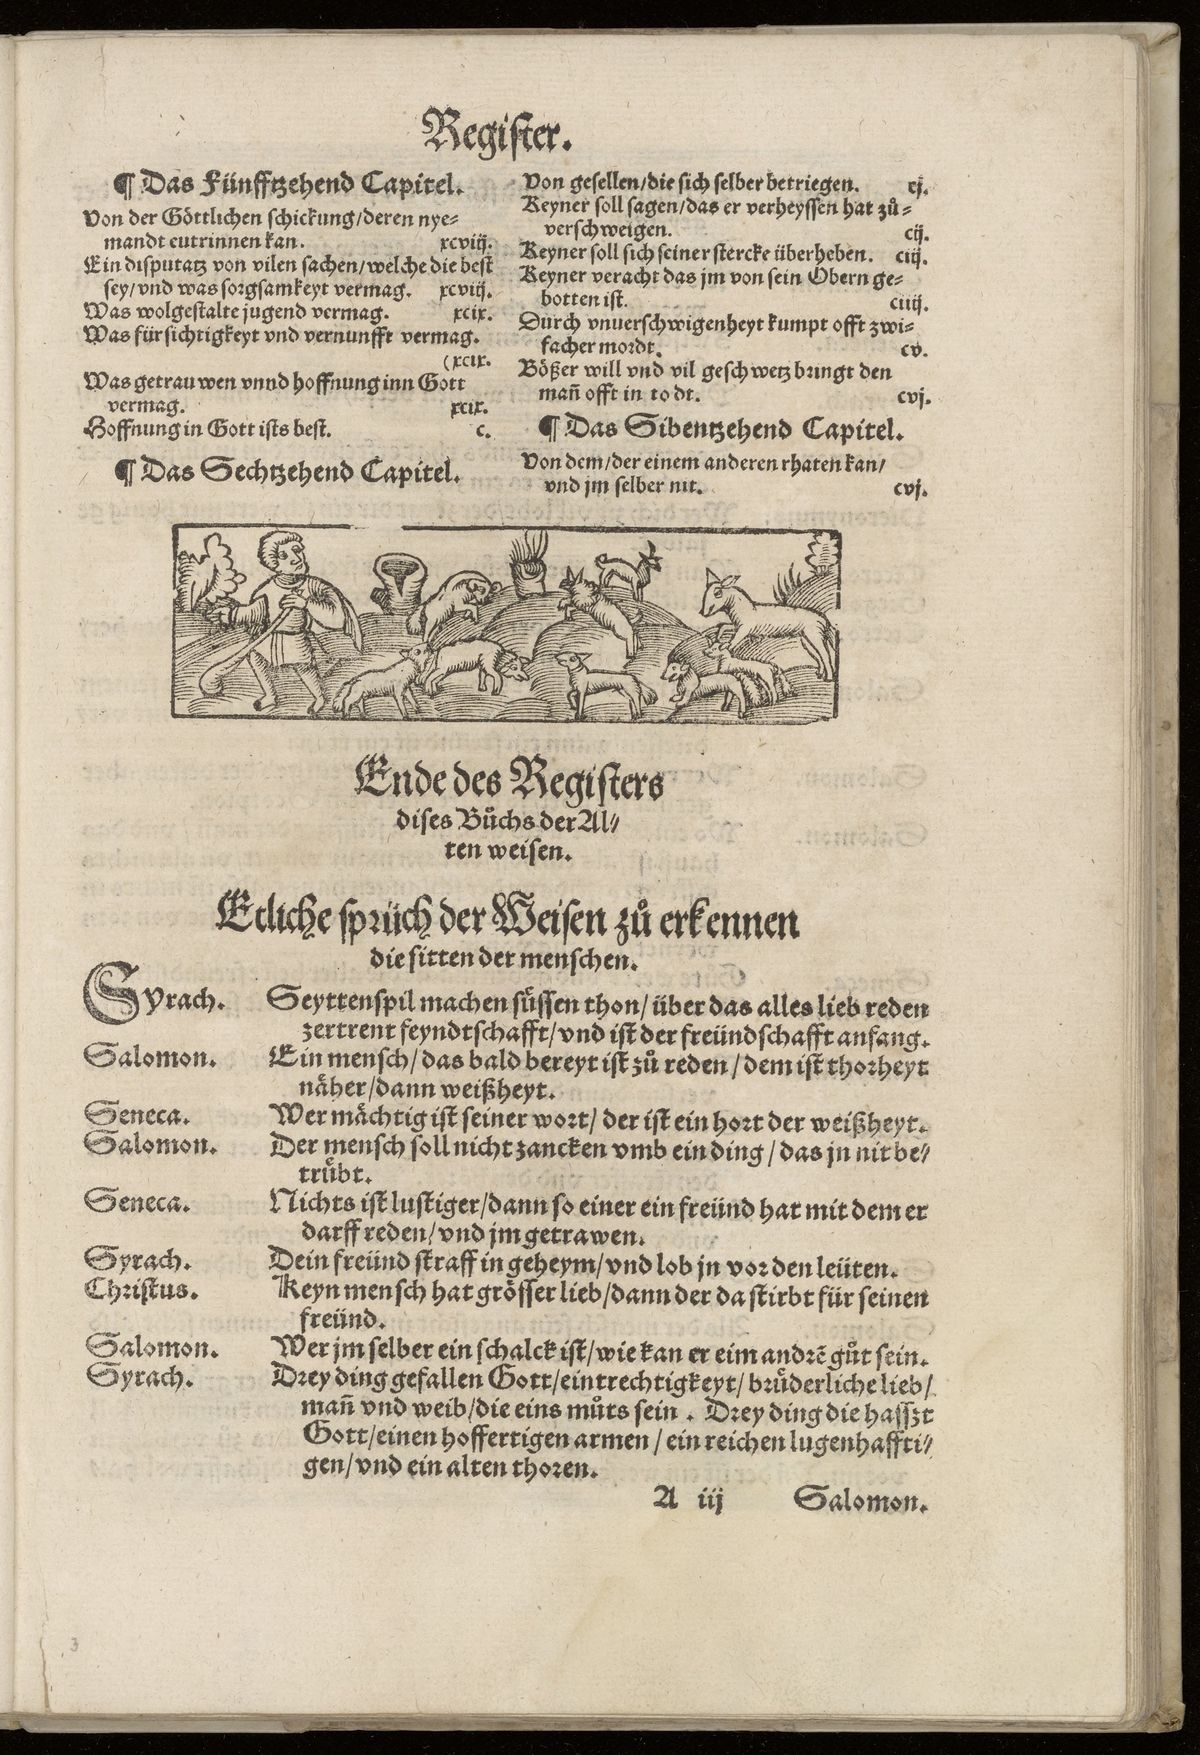 Register.
¶ Das Fünfftzehend Capitel.
Von der Göttlichen schickung/deren nye-
mandt eutrinnen kan. xcviij.
Ein disputatz von vilen sachen/welche die best
sey/vnd was sorgsamkeyt vermag. xcviij.
Was wolgestalte jugend vermag. xcix.
Was fürsichtigkeyt vnd vernunfft vermag.
(xcix.
Was getrauwen vnnd hoffnung inn Gott
vermag. xcix.
Hoffnung in Gott ists best. c.
¶ Das Sechtzehend Capitel.
Von gesellen/die sich selber betriegen. cj.
Keyner soll sagen/das er verheyssen hat zů-
verschweigen. cij.
Keyner soll sich seiner stercke überheben. ciij.
Keyner veracht das jm von sein Obern ge-
botten ist. ciiij.
Durch vnuerschwigenheyt kumpt offt zwi-
facher mordt. cv.
Bößer will vnd vil geschwetz bringt den
mañ offt in todt. cvj.
¶ Das Sibentzehend Capitel.
Von dem/der einem anderen rhaten kan/
vnd jm selber nit. cvj.
Ende des Registers
dises Bůchs der Al-
ten weisen.
Etliche sprüch der Weisen zů erkennen
die sitten der menschen.
Syrach. Seyttenspil machen süssen thon/über das alles lieb reden
zertrent feyndtschafft/vnd ist der freündschafft anfang.
Salomon. Ein mensch/das bald bereyt ist zů reden/dem ist thorheyt
näher/dann weißheyt.
Seneca. Wer mächtig ist seiner wort/der ist ein hort der weißheyt.
Salomon. Der mensch soll nicht zancken vmb ein ding/das jn nit be-
trübt.
Seneca. Nichts ist lustiger/dann so einer ein freünd hat mit dem er
darff reden/vnd jm getrawen.
Syrach. Dein freünd straff in geheym/vnd lob jn vor den leüten.
Christus. Keyn mensch hat grösser lieb/dann der da stirbt für seinen
freünd.
Salomon. Wer jm selber ein schalck ist/wie kan er eim andrē gůt sein.
Syrach. Drey ding gefallen Gott/eintrechtigkeyt/brüderliche lieb/
mañ vnd weib/die eins můts sein. Drey ding die hasszt
Gott/einen hoffertigen armen/ein reichen lugenhaffti-
gen/vnd ein alten thoren.
A iij Salomon.
3